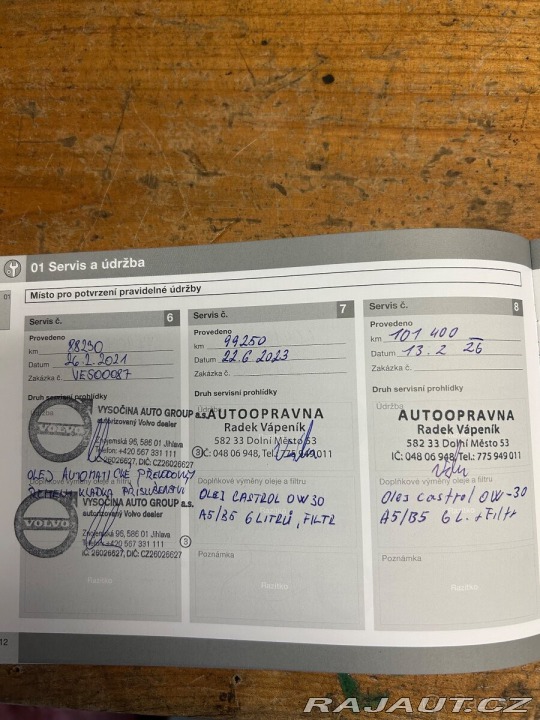 01 Servis a údržba
01
Místo pro potvrzení pravidelné údržby
Servis č. 6
Provedeno
km 88290
Datum 26.2.2021
Zakázka č. VES00087
Druh servisní prohlídky
Údržba
VOLVO
VYSOČINA AUTO GROUP a.s.
autorizovaný Volvo dealer
Znojemská 95, 586 01 Jihlava
telefon: +420 567 331 111
26026627, DIČ: CZ26026627
3
OLEJ AUTOMATICKÉ PŘEVODOVKY
Doplňkové výměny oleje a filtru
ŘEMEN KLADKA PŘÍSLUŠENSTVÍ
VOLVO
VYSOČINA AUTO GROUP a.s.
autorizovaný Volvo dealer
Znojemská 95, 586 01 Jihlava
telefon: +420 567 331 111
IČ: 26026627, DIČ: CZ26026627
3
Razítko
Servis č. 7
Provedeno
km 99250
Datum 22.6.2023
Zakázka č.
Druh servisní prohlídky
Údržba
AUTOOPRAVNA
Radek Vápeník
582 33 Dolní Město 53
IČ: 048 06 948, Tel.: 775 949 011
Doplňkové výměny oleje a filtru
OLEJ CASTROL 0W30
A5/B5 6 LITRŮ, FILTR
Poznámka
Razítko
Servis č. 8
Provedeno
km 101 400
Datum 13. 2 26
Zakázka č.
Druh servisní prohlídky
Údržba
AUTOOPRAVNA
Radek Vápeník
582 33 Dolní Město 53
IČ: 048 06 948, Tel.: 775 949 011
Doplňkové výměny oleje a filtru
Olej castrol 0W-30
A5/B5 6 L. + Filtr
Poznámka
Razítko
12
RAJAUT.CZ